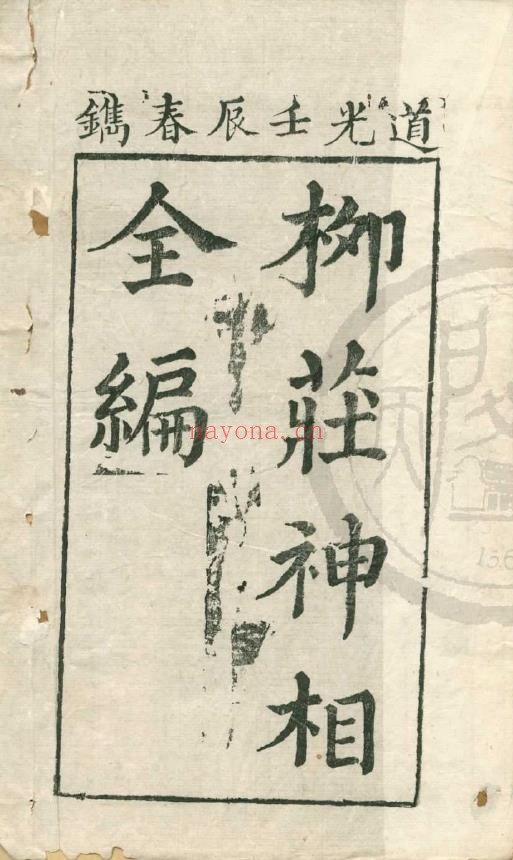 道光壬辰春鐫
柳莊神相
全編
nayona.cn